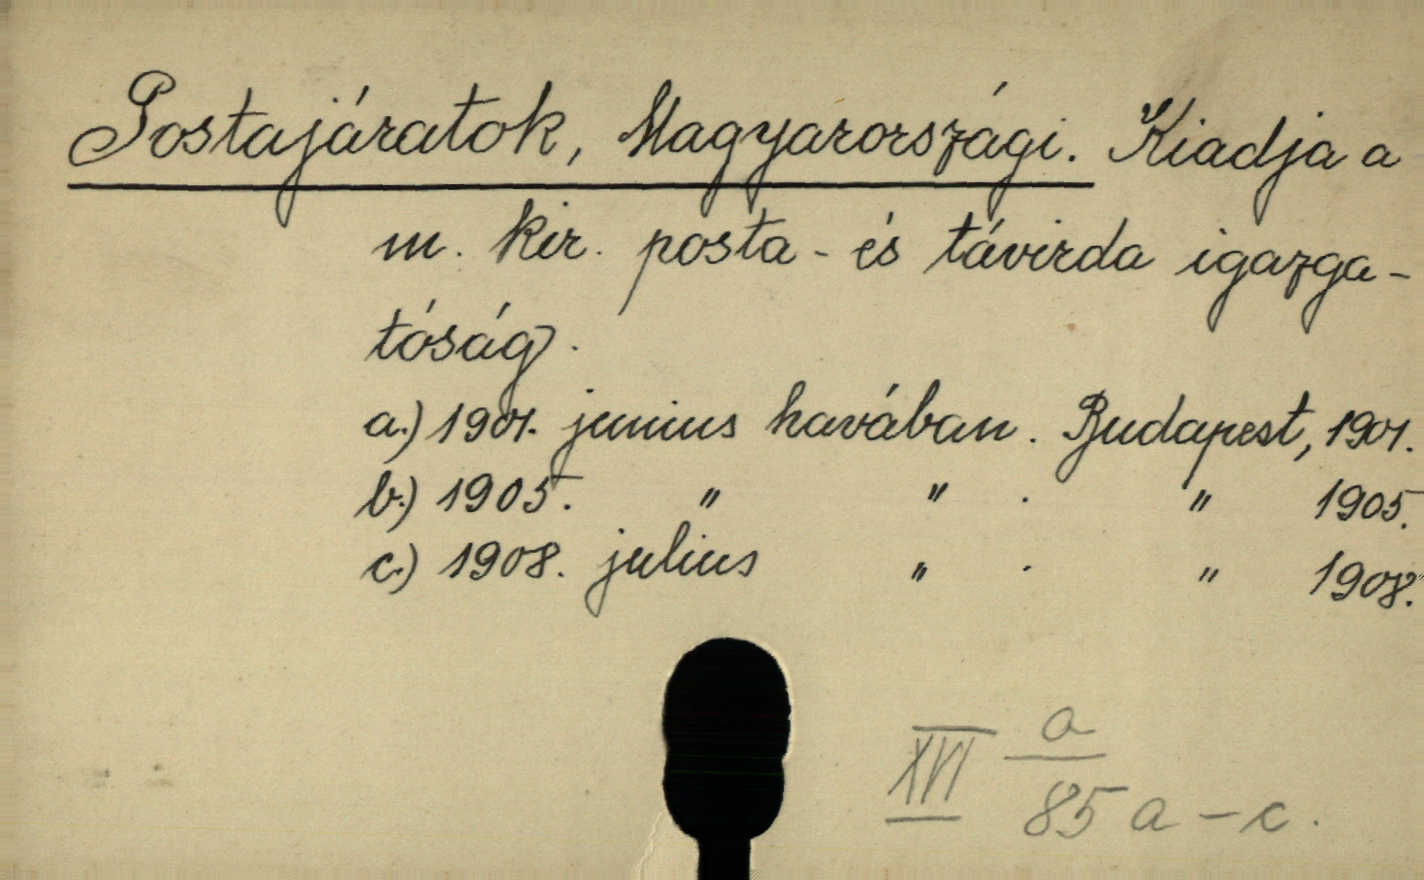 Postajáratok, Magyarországi. Kiadja a
m. kir. posta- és távirda igazga-
tóság.
a.) 1901. junius havában. Budapest, 1901.
b.) 1905. " " . " 1905.
c.) 1908. julius " . " 1908.
XVI a
85 a - c.